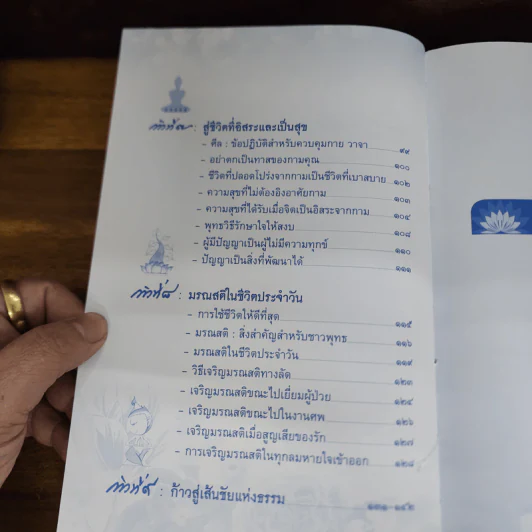 ภาคที่ ๗ : สู่ชีวิตที่อิสระและเป็นสุข
- ศีล : ข้อปฏิบัติสำหรับควบคุมกาย วาจา ๙๙
- อย่าตกเป็นทาสของกามคุณ ๑๐๐
- ชีวิตที่ปลอดโปร่งจากกามเป็นชีวิตที่เบาสบาย ๑๐๒
- ความสุขที่ไม่ต้องอิงอาศัยกาม ๑๐๓
- ความสุขที่ได้รับเมื่อจิตเป็นอิสระจากกาม ๑๐๔
- พุทธวิธีรักษาใจให้สงบ ๑๐๘
- ผู้มีปัญญาเป็นผู้ไม่มีความทุกข์ ๑๑๐
- ปัญญาเป็นสิ่งที่พัฒนาได้ ๑๑๑
ภาคที่ ๘ : มรณสติในชีวิตประจำวัน
- การใช้ชีวิตให้ดีที่สุด ๑๑๕
- มรณสติ : สิ่งสำคัญสำหรับชาวพุทธ ๑๑๖
- มรณสติในชีวิตประจำวัน ๑๑๙
- วิธีเจริญมรณสติทางลัด ๑๒๓
- เจริญมรณสติขณะไปเยี่ยมผู้ป่วย ๑๒๔
- เจริญมรณสติขณะไปในงานศพ ๑๒๖
- เจริญมรณสติเมื่อสูญเสียของรัก ๑๒๗
- การเจริญมรณสติในทุกลมหายใจเข้าออก ๑๒๘
ภาคที่ ๙ : ก้าวสู่เส้นชัยแห่งธรรม ๑๓๑-๑๔๒